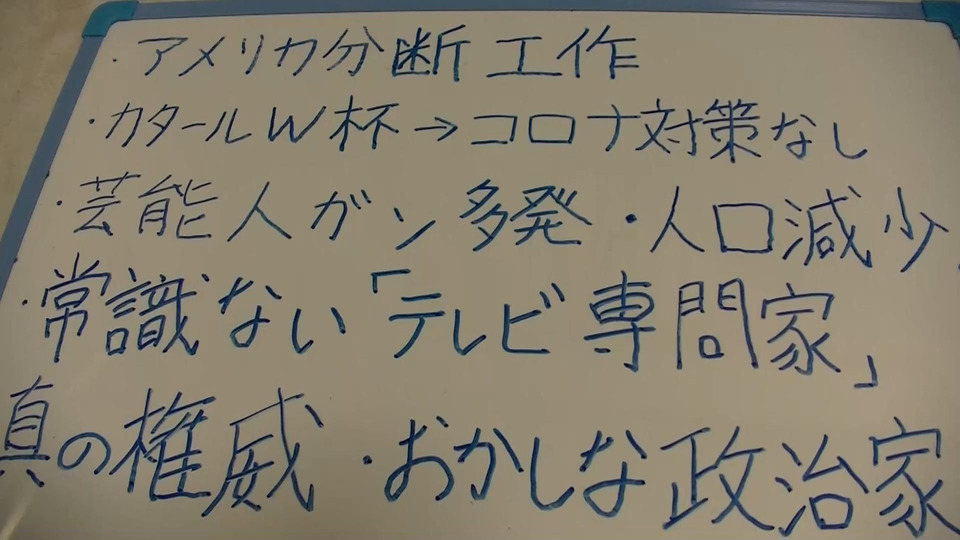 ・アメリカ分断工作
・カタールW杯→コロナ対策なし
・芸能人ガン多発・人口減少
・常識ない「テレビ専門家」
真の権威・おかしな政治家